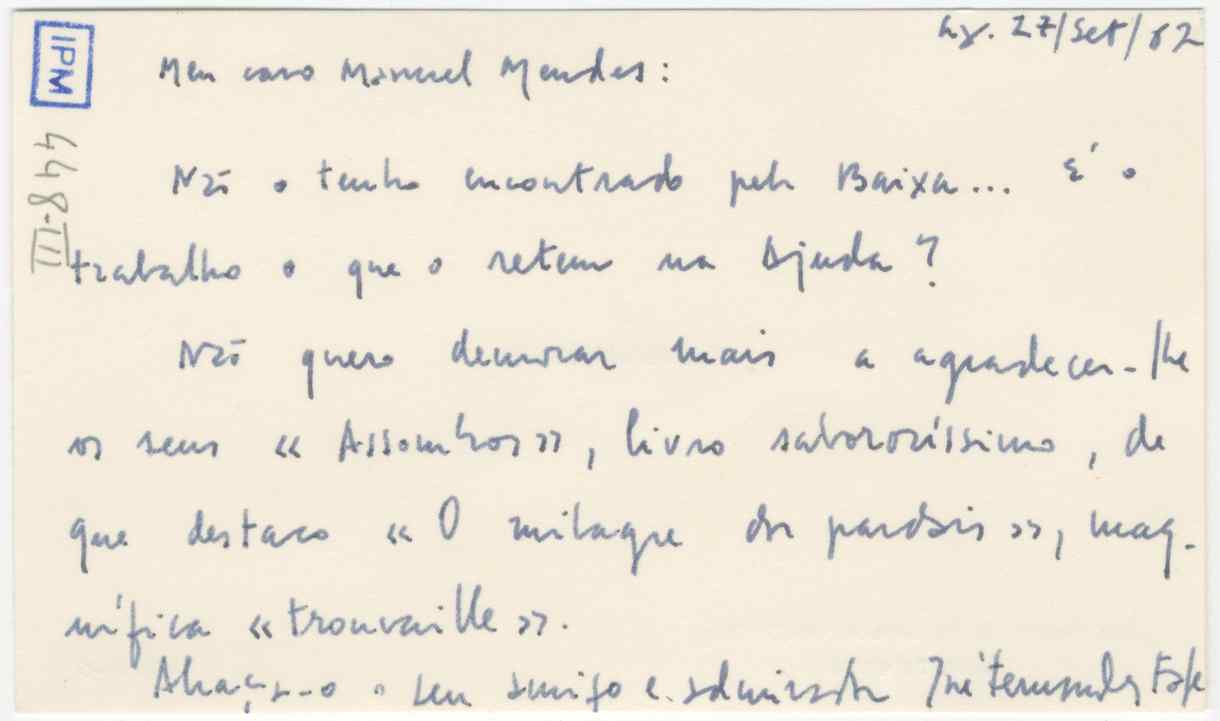 Lx. 27/Set/62
IPM
448-III
Meu caro Manuel Mendes:
Não o tenho encontrado pela Baixa... É o
trabalho o que o retem na Ajuda?
Não quero demorar mais a agradecer-lhe
os seus «Assombros», livro saborosíssimo, de
que destaco «O milagre dos pardais», mag-
nífica «trouvaille».
Abraça-o o seu amigo e admirador José Fernandes Fafe